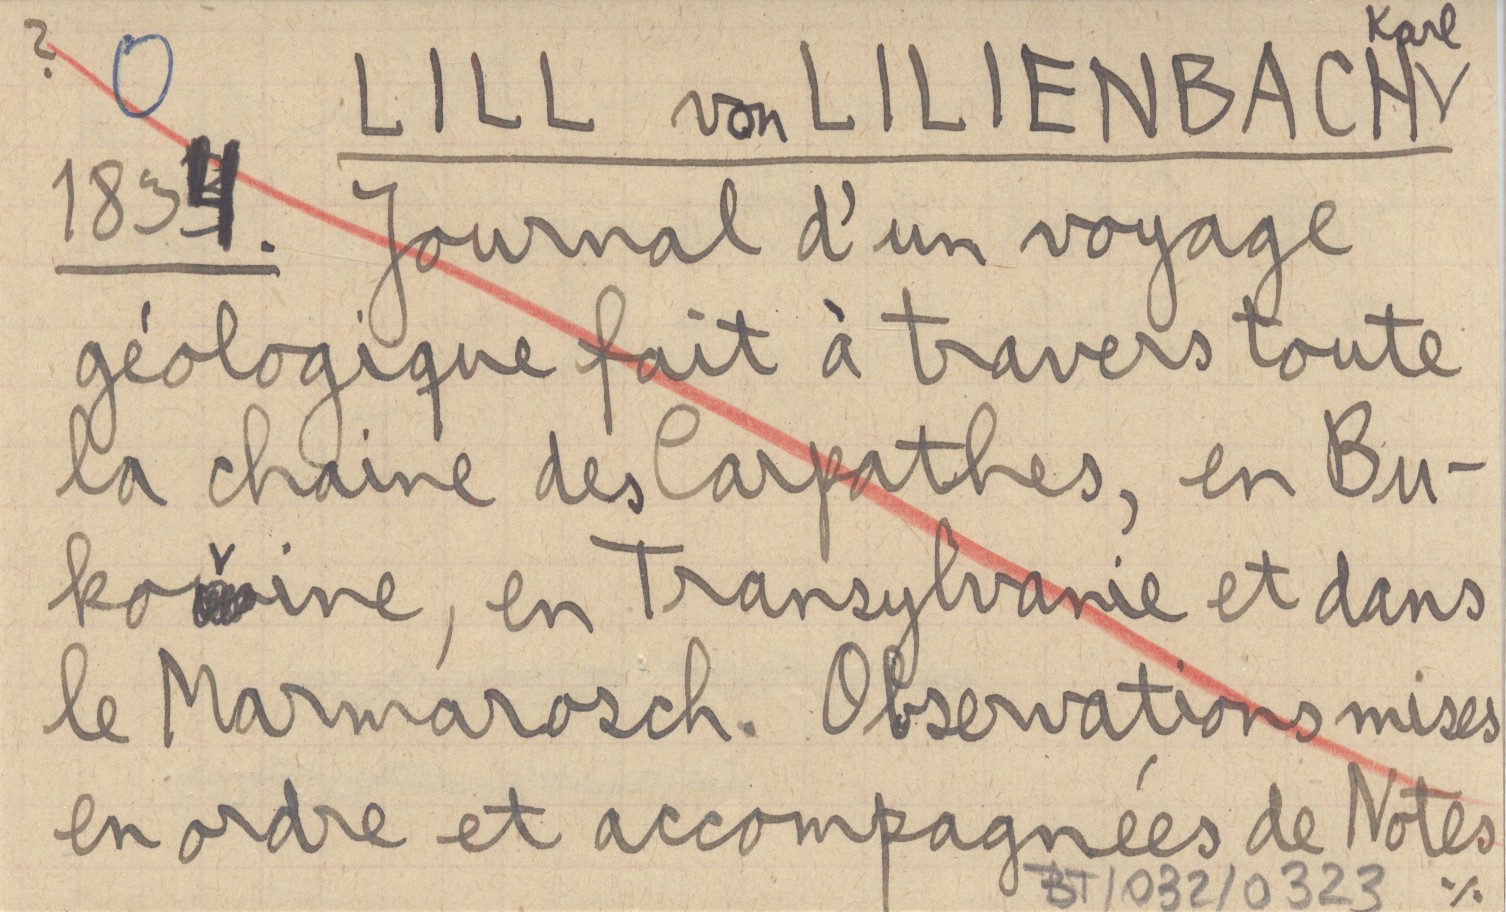 ? O Karl
LILL von LILIENBACH
1834. Journal d'un voyage
géologique fait à travers toute
la chaine des Carpathes, en Bu-
kovine, en Transylvanie et dans
le Marmarosch. Observations mises
en ordre et accompagnées de Notes
BT/032/0323 ./.